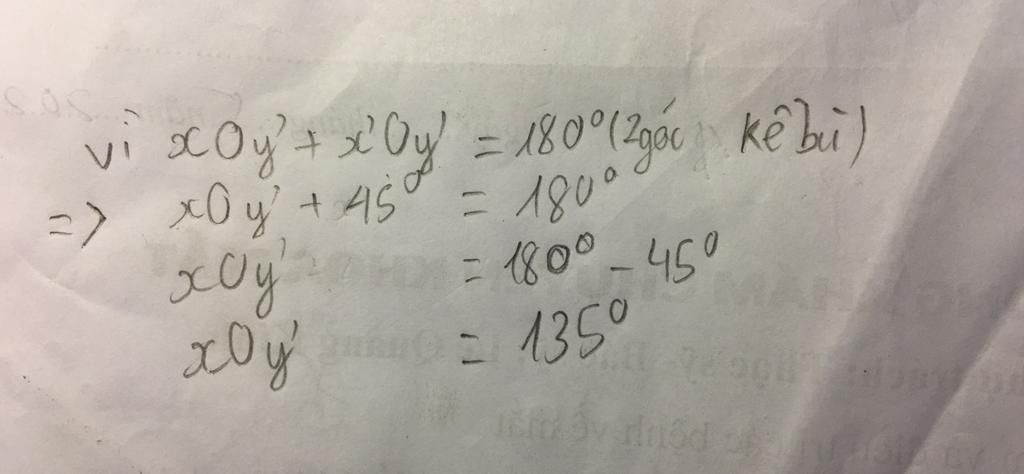 vì xOy' + x'Oy' = 180° (2 góc kề bù)
=> xOy' + 45° = 180°
xOy' = 180° - 45°
xOy' = 135°